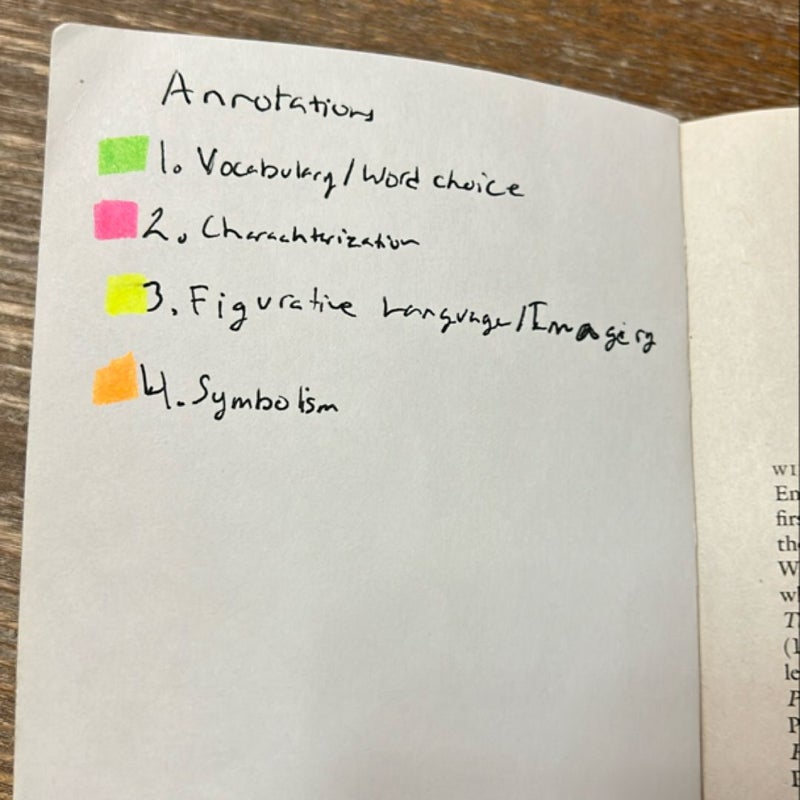 Annotations
1. Vocabulary/Word choice
2. Charachterization
3. Figurative Language/Imagery
4. Symbolism
WI
En
firs
the
W
wh
(1
le
P
P